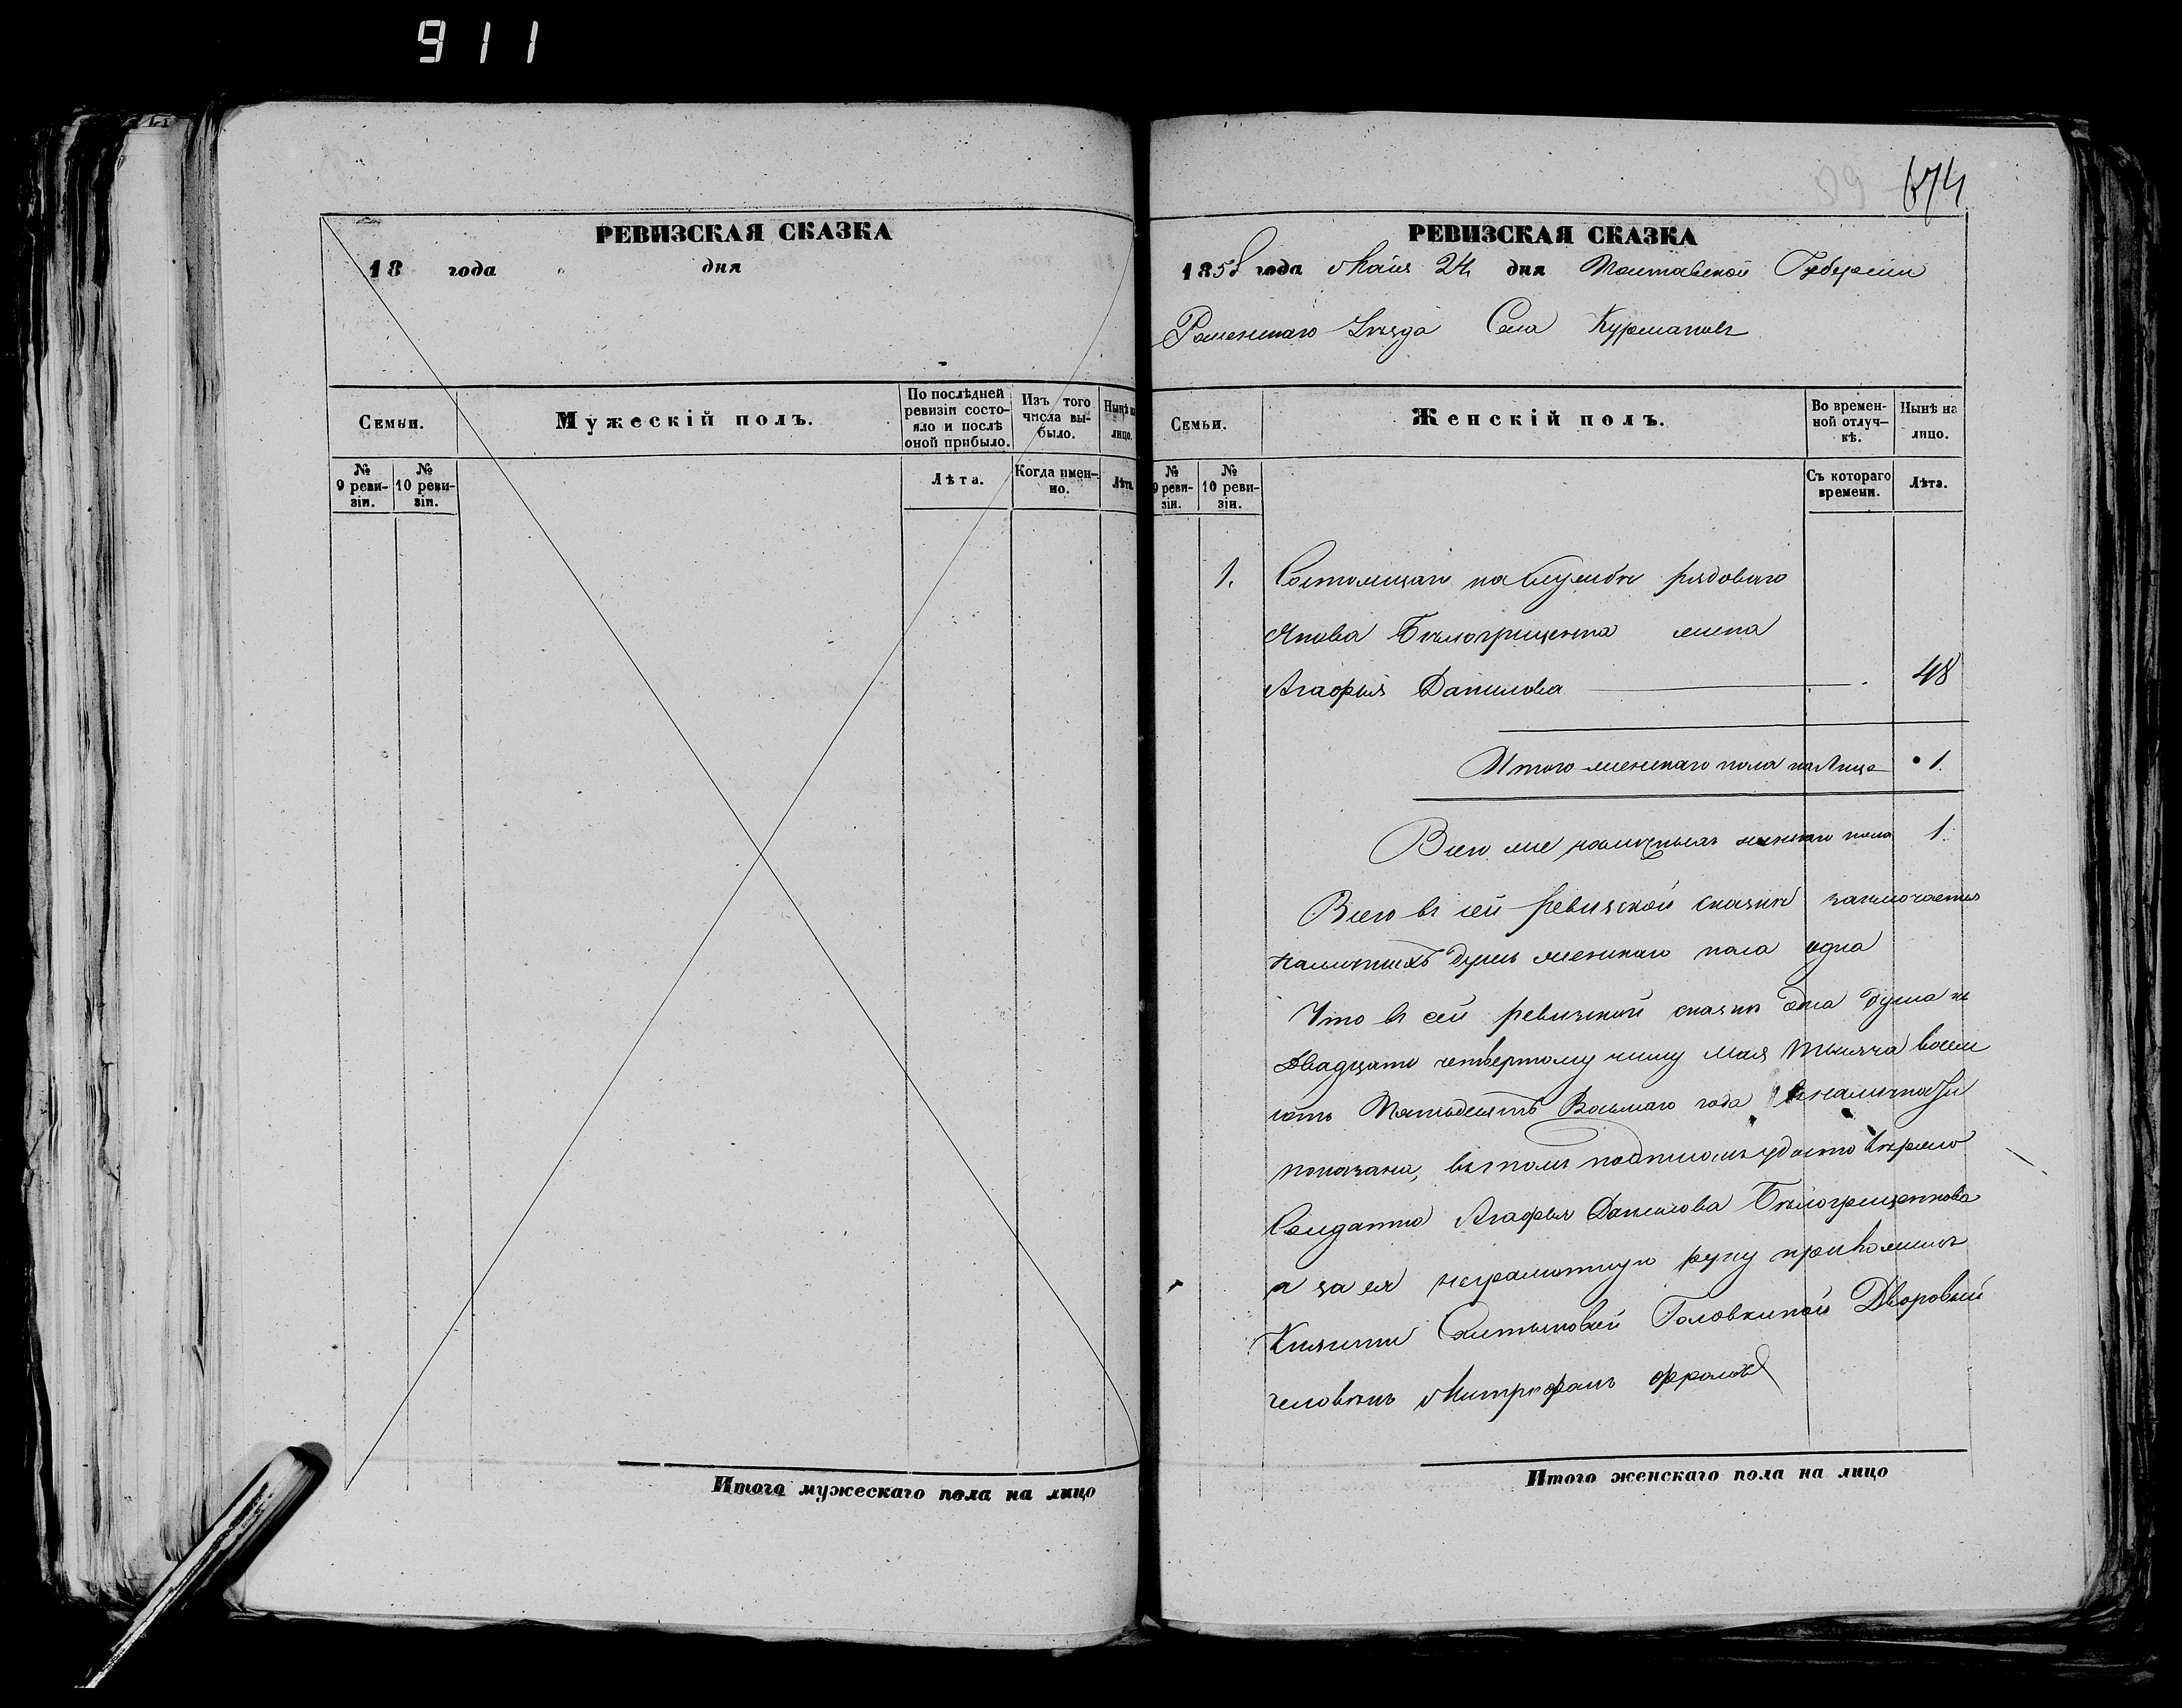 911
674
РЕВИЗСКАЯ СКАЗКА
18 года дня
Семьи.
Мужескій полъ.
По послѣдней ревизіи состояло и послѣ оной прибыло.
Изъ того числа выбыло.
Нынѣ на лицо.
№ 9 ревизіи.
№ 10 ревизіи.
Лѣта.
Когда именно.
Лѣта
Итого мужескаго пола на лицо
РЕВИЗСКАЯ СКАЗКА
1858 года Маія 24 дня Полтавской Губерніи
Роменскаго Уѣзда Села Курмановъ
Семьи.
Женскій полъ.
Во временной отлучкѣ.
Нынѣ на лицо.
№ 9 ревизіи.
№ 10 ревизіи.
Съ котораго времени.
Лѣта.
1. Состоящаго на Службѣ рядоваго
Якова Бѣлогрищенка жена
Агафья Данилова 48
Итого женскаго пола на Лицо 1.
Всего же наличныхъ женскаго пола 1.
Всего въ сей Ревизской сказкѣ заключается
наличныхъ душъ женскаго пола одна
Что въ сей ревизской сказкѣ одна душа къ
Двадцать четвертому числу Мая тысяча восем
сотъ Пятьдесятъ Восьмаго года
показана, въ томъ подписомъ удостовѣряю
Солдатка Агафья Данилова Бѣлогрищенкова
а за ея неграмотную руку приложилъ
Княгини Салтыковой Головкиной Дворовый
человѣкъ Митрофанъ Фроловъ
Итого женскаго пола на лицо